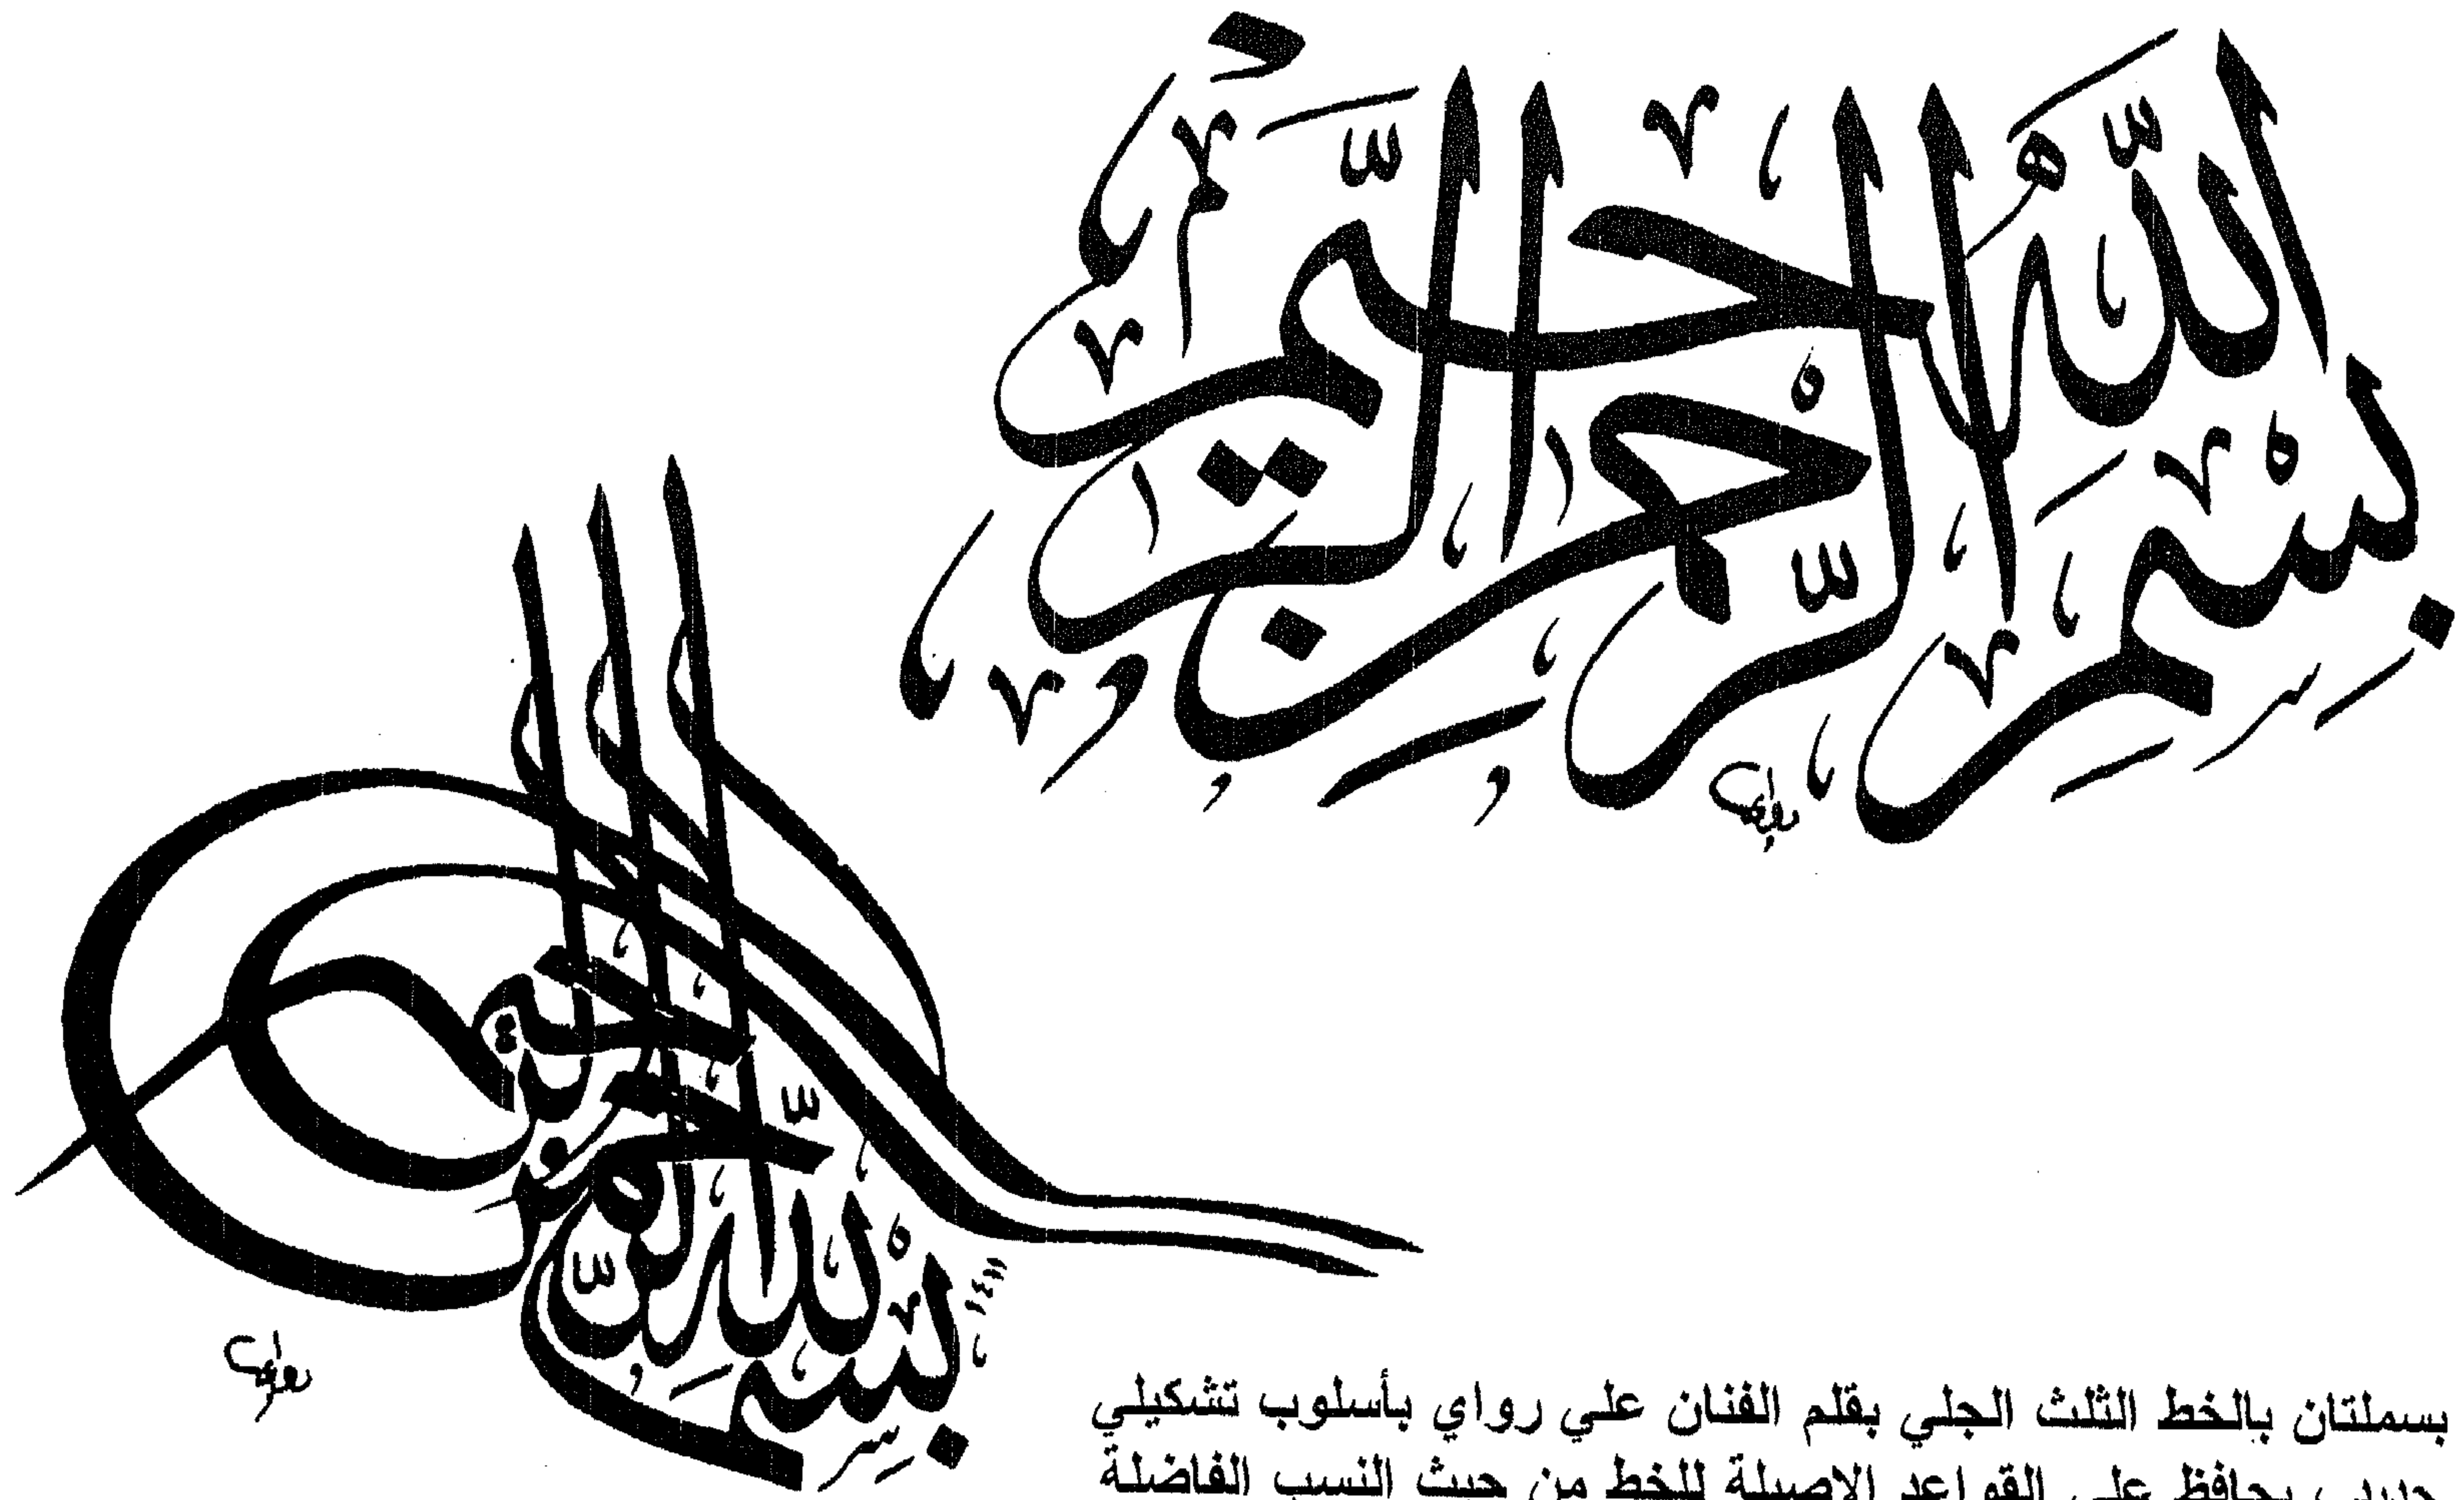 بسم الله الرحمن الرحيم
رواي
بسم الله الرحمن الرحيم
رواي
بسملتان بالخط الثلث الجلي بقلم الفنان علي رواي بأسلوب تشكيلي
يحافظ على القواعد الاصيلة للخط من حيث النسب الفاضلة